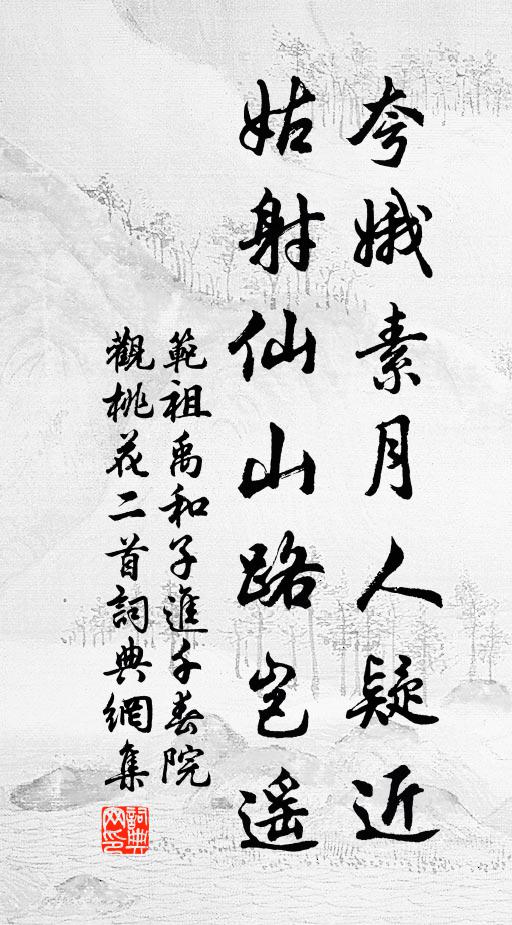 夸娥素月人疑近
姑射仙山路岂遥
範祖禹和子進千春院
觀桃花二首詞典網集
詞典
网印